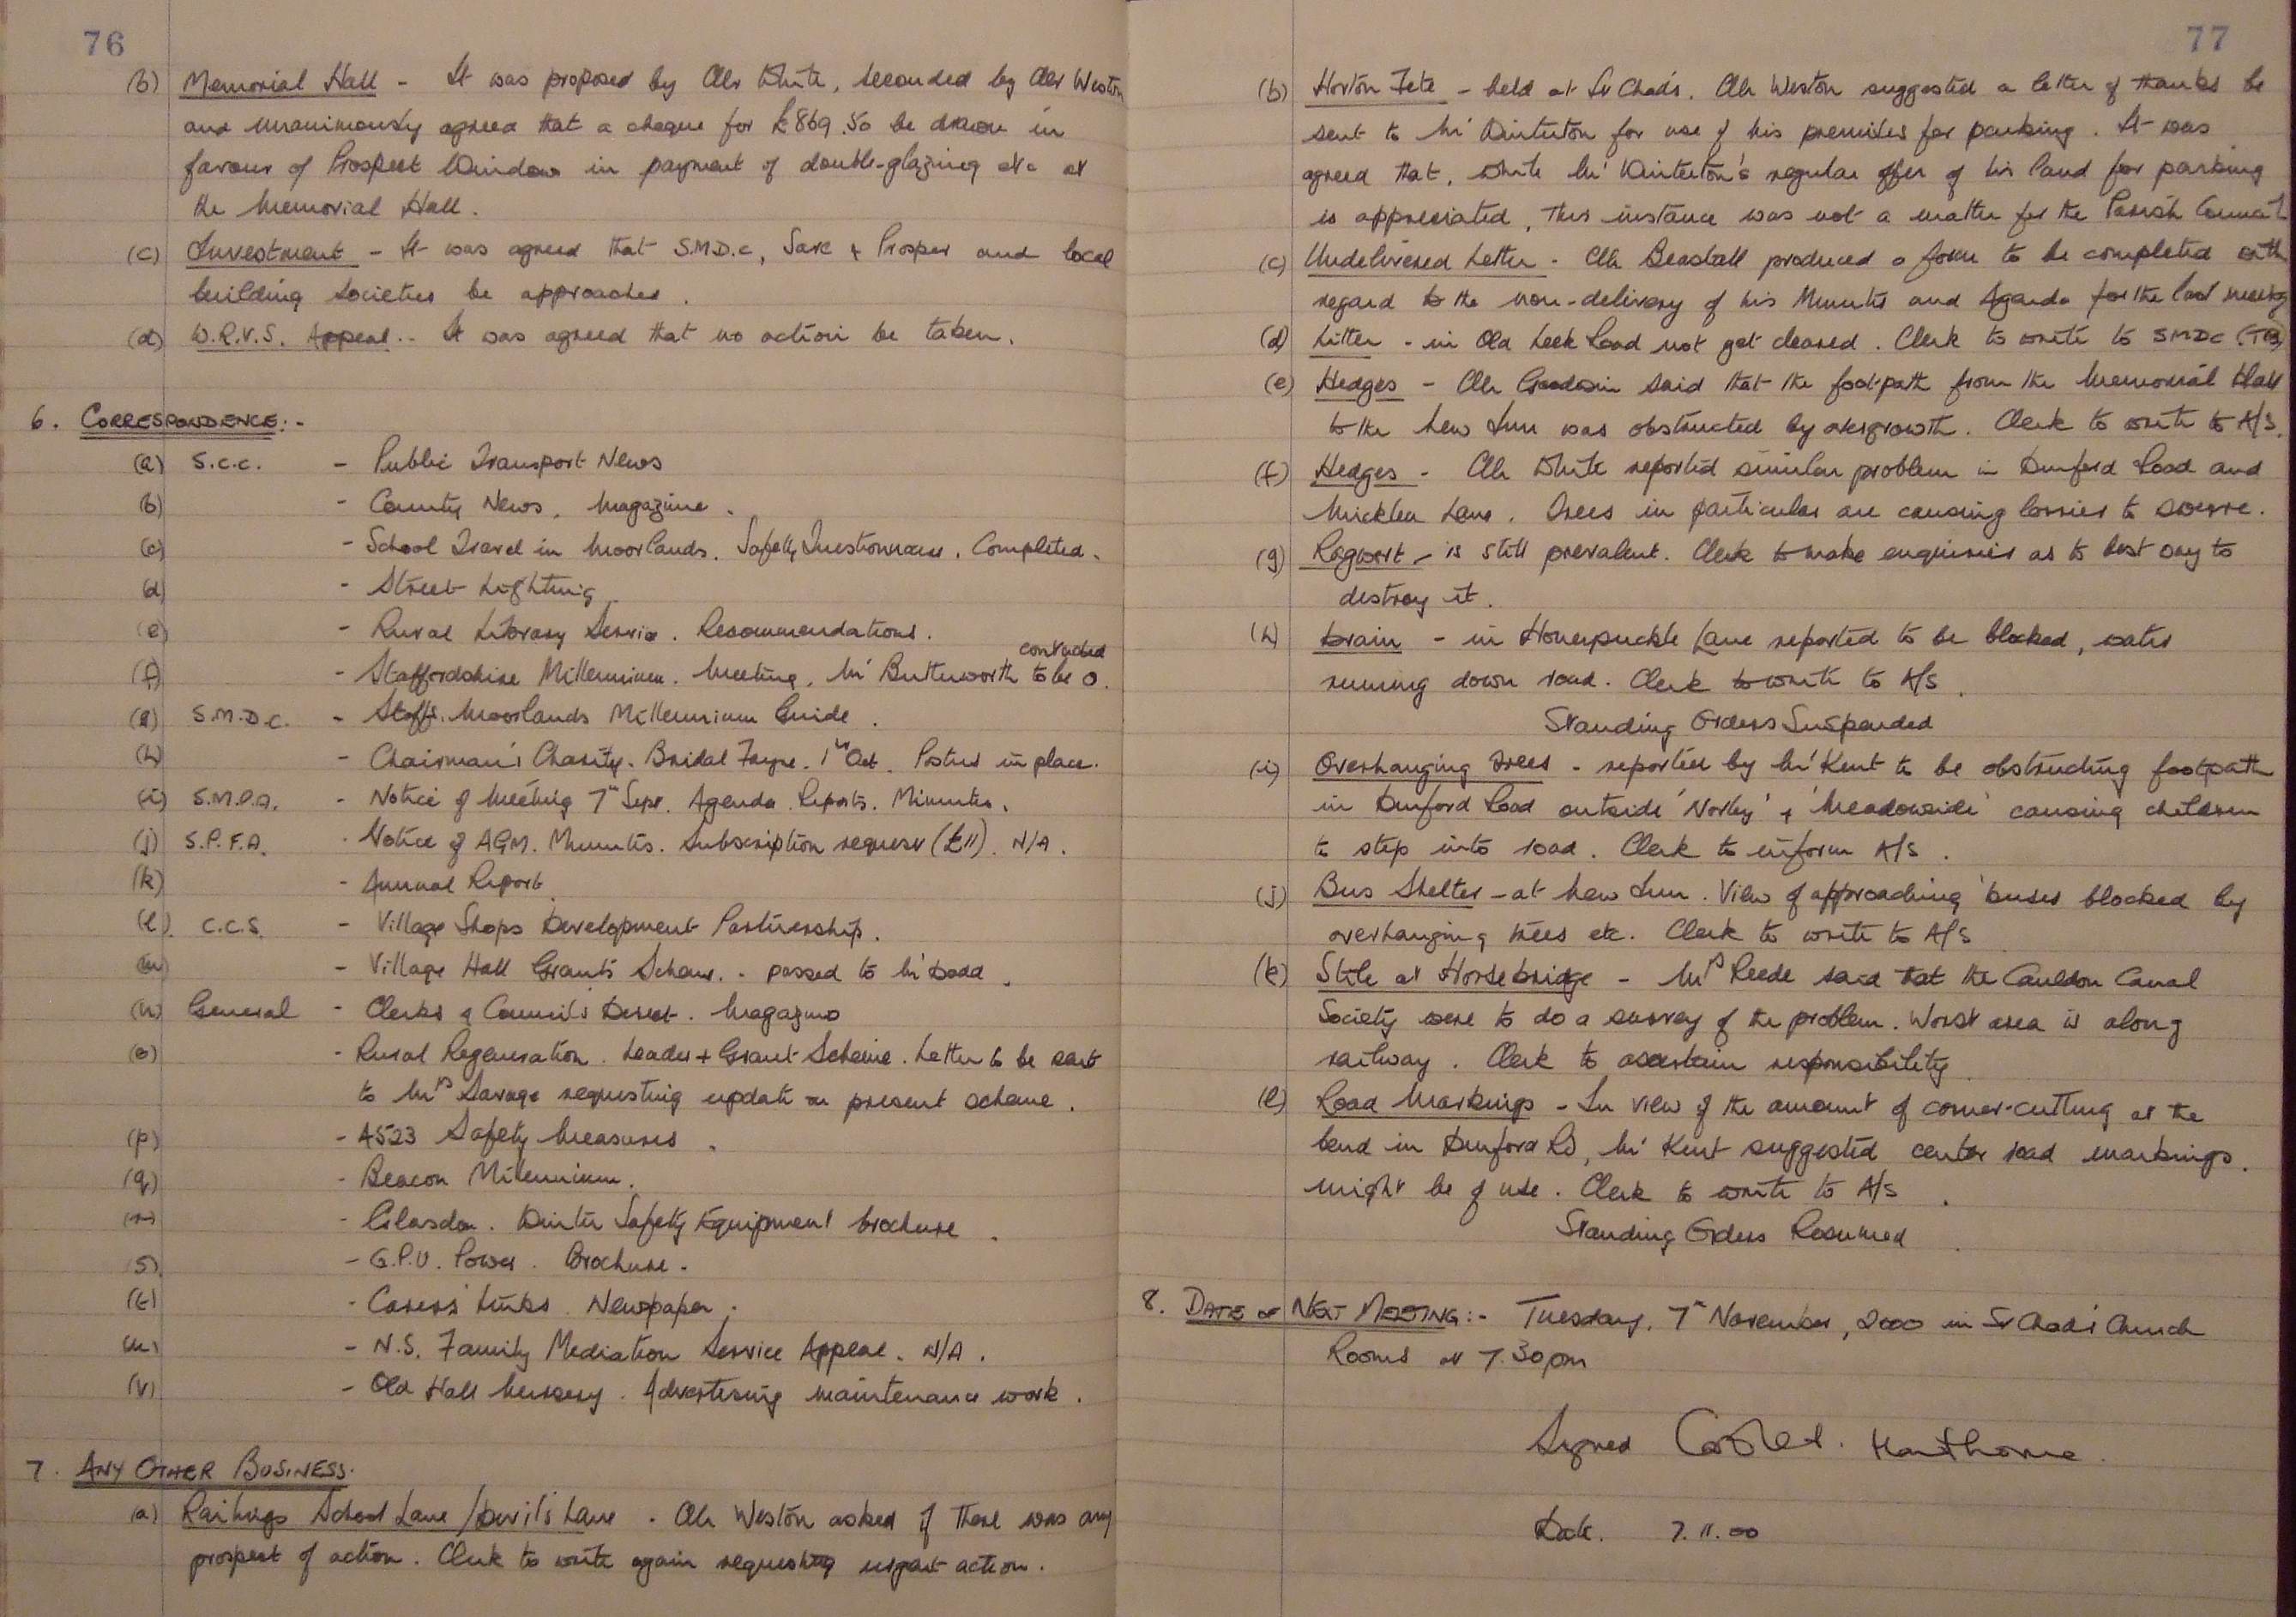 76
(b) Memorial Hall - It was proposed by Cllr White, seconded by Cllr Weston
and unanimously agreed that a cheque for £869.50 be drawn in
favour of Prospect Windows in payment of double-glazing etc at
the Memorial Hall.
(c) Investment - It was agreed that S.M.D.C, Save & Prosper and local
building societies be approached.
(d) W.R.V.S. Appeal.- It was agreed that no action be taken.
6. CORRESPONDENCE:-
(a) S.C.C. - Public Transport News
(b) - County News. Magazine.
(c) - School Travel in Moorlands. Safety Questionnaire. Completed.
(d) - Street Lighting
(e) - Rural Library Service. Recommendations.
contacted
(f) - Staffordshire Millennium. Meeting. Mr Butterworth to be
(g) S.M.D.C. - Staffs. Moorlands Millennium Guide.
(h) - Chairman's Charity. Bridal Fayre. 1st Oct. Posters in place.
(i) S.M.P.A. - Notice of Meeting 7th Sept. Agenda. Reports. Minutes.
(j) S.P.F.A. - Notice of AGM. Minutes. Subscription request (£11). N/A.
(k) - Annual Report
(l) C.C.S. - Village Shops Development Partnership.
(m) - Village Hall Grants Scheme. - passed to Mr Dodd.
(n) General - Clerks & Councils Direct. Magazine
(o) - Rural Regeneration. Leader + Grant Scheme. Letter to be sent
to Mrs Savage requesting update on present scheme.
(p) - A523 Safety Measures.
(q) - Beacon Millennium.
(r) - Glasdon. Winter Safety Equipment brochure.
(s) - G.P.U. Power. Brochure.
(t) - Carers' Links. Newspaper.
(u) - N.S. Family Mediation Service Appeal. N/A.
(v) - Old Hall Nursery. Advertising maintenance work.
7. ANY OTHER BUSINESS.
(a) Railings School Lane/Devil's Lane - Cllr Weston asked if there was any
prospect of action. Clerk to write again requesting urgent action.
77
(b) Horton Fete - held at St Chad's. Cllr Weston suggested a letter of thanks be
sent to Mr Winterton for use of his premises for parking. It was
agreed that, while Mr Winterton's regular offer of his land for parking
is appreciated, this instance was not a matter for the Parish Council
(c) Undelivered Letter - Cllr Beasball produced a form to be completed with
regard to the non-delivery of his Minutes and Agenda for the last meeting
(d) Litter - in Old Leek Road not yet cleared. Clerk to write to SMDC
(e) Hedges - Cllr Goodwin said that the footpath from the Memorial Hall
to the New Inn was obstructed by overgrowth. Clerk to write to A/S.
(f) Hedges - Cllr White reported similar problem in Dunford Road and
Micklea Lane. Trees in particular are causing lorries to swerve.
(g) Ragwort - is still prevalent. Clerk to make enquiries as to best way to
destroy it.
(h) Drain - in Honeysuckle Lane reported to be blocked, water
running down road. Clerk to write to A/S.
Standing Orders Suspended
(i) Overhanging Trees - reported by Mr Kent to be obstructing footpath
in Dunford Road outside 'Norley' & 'Meadowside' causing children
to step into road. Clerk to inform A/S.
(j) Bus Shelter - at New Inn. View of approaching buses blocked by
overhanging trees etc. Clerk to write to A/S
(k) Stile at Horsebridge - Mrs Reede said that the Cauldon Canal
Society were to do a survey of the problem. Worst area is along
railway. Clerk to ascertain responsibility.
(l) Road Markings - In view of the amount of corner-cutting at the
bend in Dunford Rd, Mr Kent suggested center road markings
might be of use. Clerk to write to A/S.
Standing Orders Resumed
8. DATE OF NEXT MEETING:- Tuesday, 7th November, 2000 in St Chad's Church
Rooms at 7.30pm
Signed Hawthorne
Date. 7.11.00